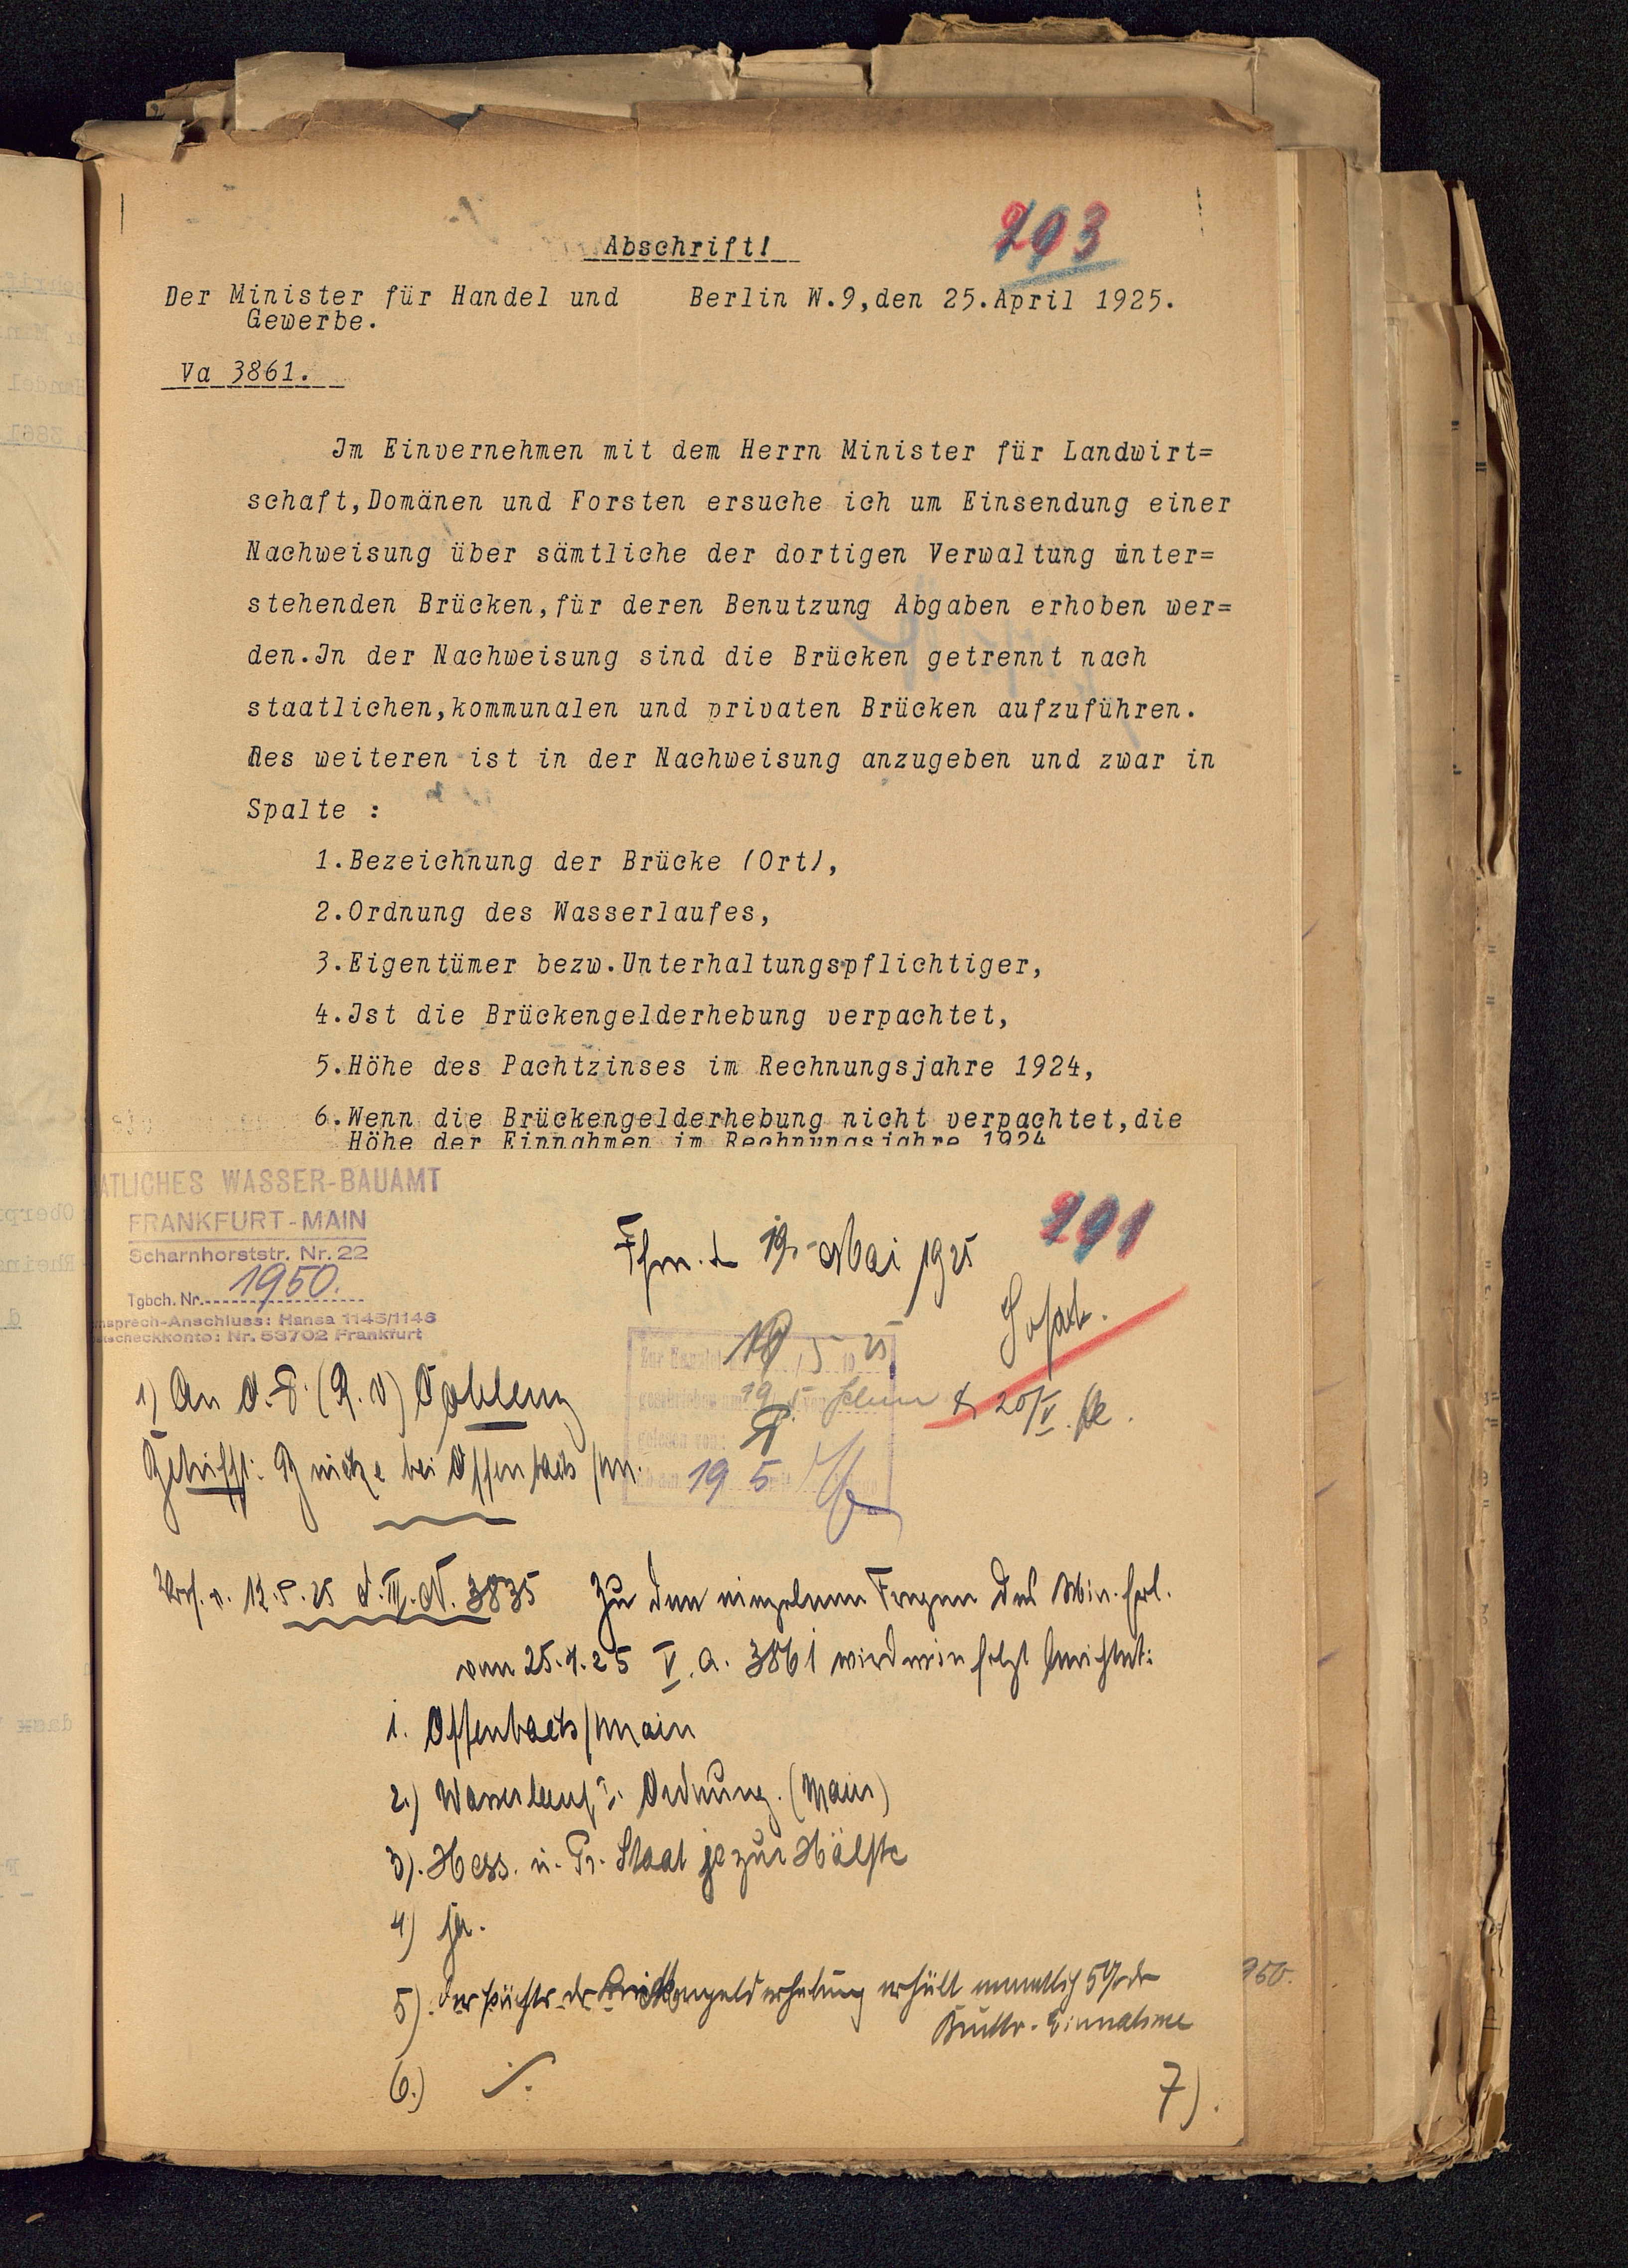 293
Abschrift!
Der Minister für Handel und Berlin W.9,den 25.April 1925.
Gewerbe.
Va 3861.
Im Einvernehmen mit dem Herrn Minister für Landwirt=
schaft,Domänen und Forsten ersuche ich um Einsendung einer
Nachweisung über sämtliche der dortigen Verwaltung unter=
stehenden Brücken,für deren Benutzung Abgaben erhoben wer=
den.In der Nachweisung sind die Brücken getrennt nach
staatlichen,kommunalen und privaten Brücken aufzuführen.
Des weiteren ist in der Nachweisung anzugeben und zwar in
Spalte :
1.Bezeichnung der Brücke (Ort),
2.Ordnung des Wasserlaufes,
3.Eigentümer bezw.Unterhaltungspflichtiger,
4.Ist die Brückengelderhebung verpachtet,
5.Höhe des Pachtzinses im Rechnungsjahre 1924,
6.Wenn die Brückengelderhebung nicht verpachtet,die
Höhe der Einnahmen im Rechnungsjahre 1924
ATLICHES WASSER-BAUAMT
FRANKFURT-MAIN
Scharnhorststr. Nr. 22
Tgbch. Nr. 1950.
nsprech-Anschluss: Hansa 1145/1146
scheckkonto: Nr. 53702 Frankfurt
291
Ffm. d 19. Mai 1925
Sofort.
19 5 25
20/V.
gelesen von:
19 5
1) An O.P. (R. V) Coblenz
Betrifft: Brücke bei Offenbach /M.
Verf. v. 12.5.25 d. III. N. 3835 Zu den einzelnen Fragen des Min. Erl.
vom 25.4.25 V. a. 3861 wird wie folgt berichtet:
1. Offenbach/Main
2.) Wasserlauf I. Ordnung. (Main)
3). Hess. u. Pr. Staat je zur Hälfte
4) ja.
5). Der Pächter der Brückengelderhebung erhält monatlich 5% der
Brutto-Einnahme
950.
6.) ./.
7).